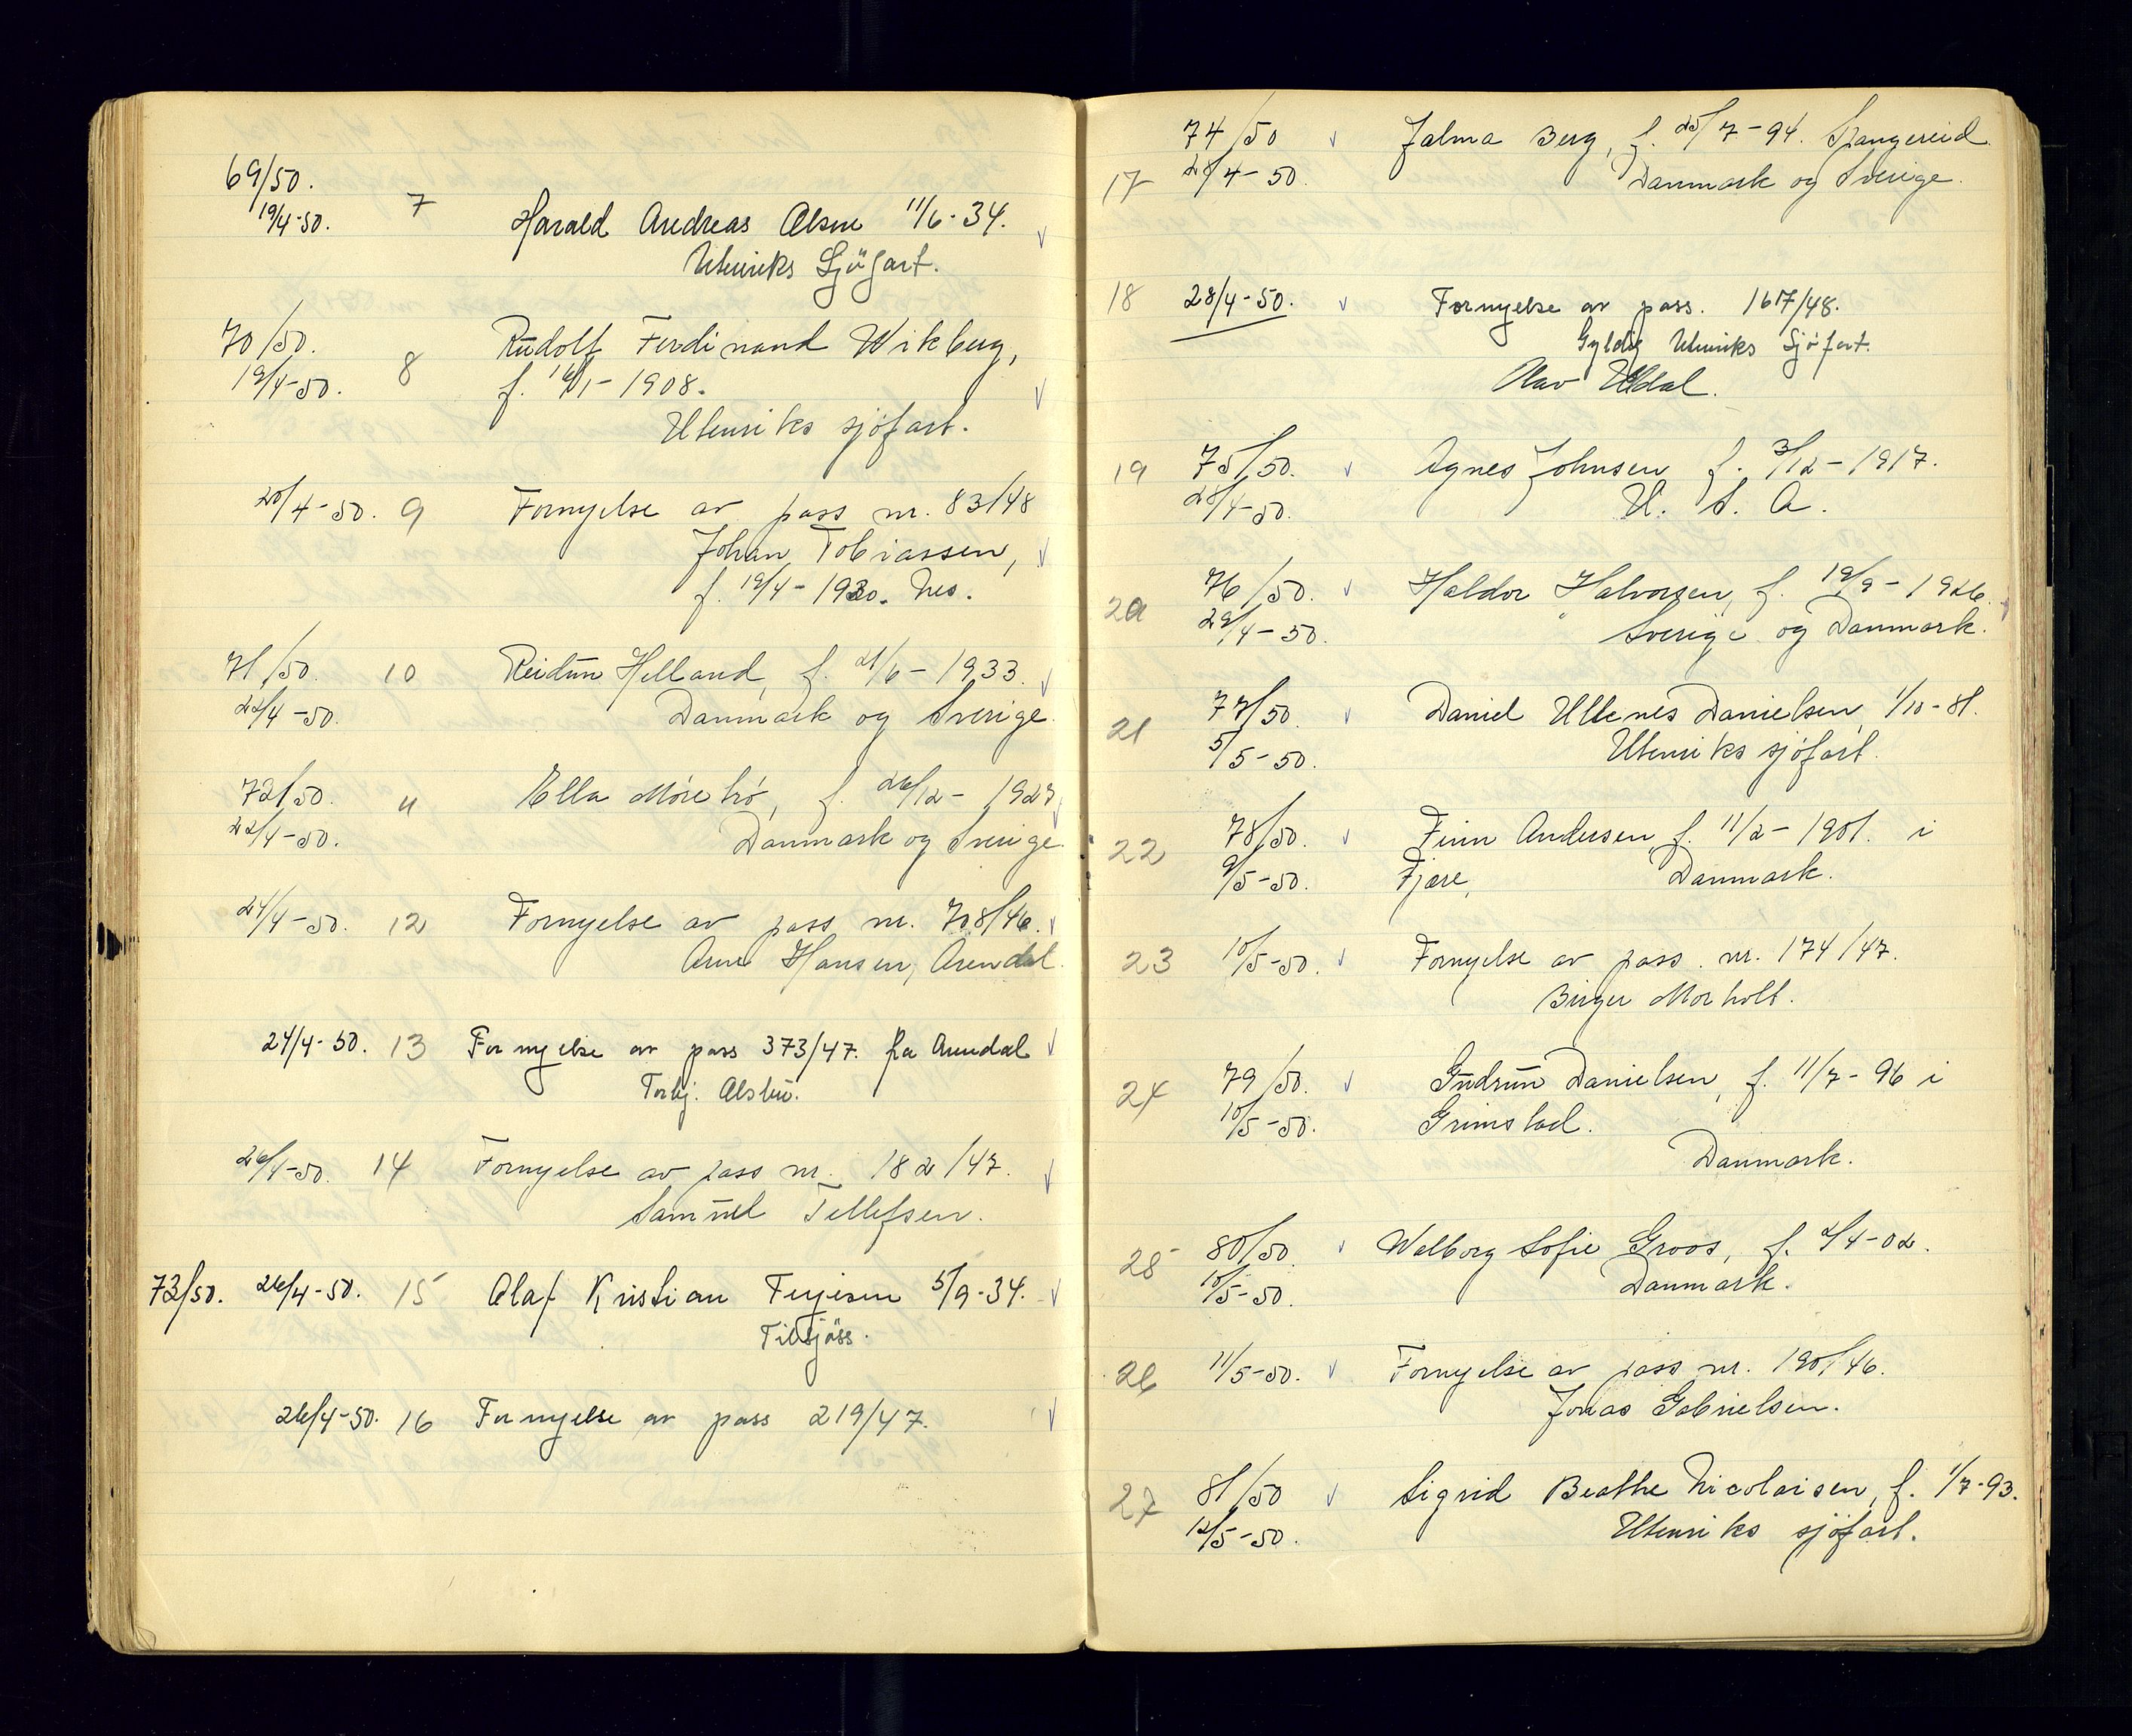 69/50.
19/4-50. 7 Harald Andreas Olsen 11/6-34.
Utenriks Sjöfart.
70/50.
19/4-50. 8 Rudolf Ferdinand Wikberg,
f. 16/1-1908.
Utenriks sjøfart.
20/4-50. 9 Fornyelse av pass nr. 83/48
Johan Tobiassen,
f. 19/4-1930. Nes.
71/50. 10 Reidun Helland, f. 21/6-1933.
22/4-50. Danmark og Sverige.
72/50. 11 Ella Mörebö, f. 26/12-1927
22/4-50. Danmark og Sverige.
24/4-50. 12 Fornyelse av pass nr. 708/46.
Arne Hansen, Arendal.
24/4-50. 13 Fornyelse av pass 373/47. fra Arendal
Torbj. Alsbu.
26/4-50. 14 Fornyelse av pass nr. 182/47.
Samuel Tellefsen.
73/50. 26/4-50. 15 Olaf Kristian Terjesen 5/9-34.
Tilsjöss.
26/4-50. 16 Fornyelse av pass 219/47.
74/50 Jalma Berg, f. 25/7-94. Spangereid.
17 28/4-50. Danmark og Sverige.
18 28/4-50. Fornyelse av pass. 167/48.
Gyldig Utenriks Sjøfart.
Olav Uldal.
19 75/50. Agnes Johnsen f. 3/12-1917.
28/4-50. U. S. A.
20 76/50. Haldor Halvorsen, f. 19/9-1926.
29/4-50. Sverige og Danmark.
21 77/50. Daniel Uttenes Danielsen, 1/10-81.
5/5-50. Utenriks sjøfart.
22 78/50. Finn Andersen, f. 11/2-1901. i
9/5-50. Fjære, Danmark.
23 10/5-50. Fornyelse av pass. nr. 174/47.
Birger Morholt.
24 79/50. Gudrun Danielsen, f. 11/7-96 i
10/5-50. Grimstad.
Danmark.
25 80/50. Walborg Sofie Groos, f. 2/4-02.
10/5-50. Danmark.
26 11/5-50. Fornyelse av pass nr. 190/46.
Jonas Gabrielsen.
27 81/50 Sigrid Beathe Nicolaisen, f. 1/7-93.
12/5-50. Utenriks sjøfart.